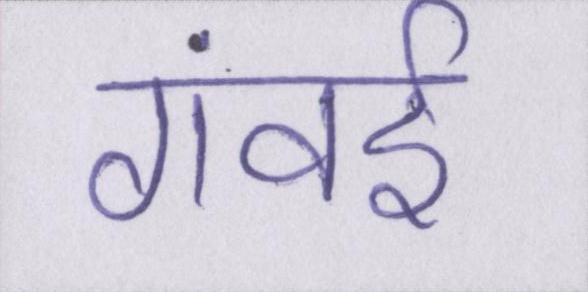 गंवई